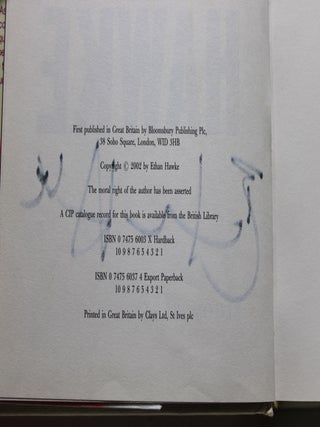 First published in Great Britain by Bloomsbury Publishing Plc,
38 Soho Square, London, W1D 3HB
Copyright © 2002 by Ethan Hawke
The moral right of the author has been asserted
A CIP catalogue record for this book is available from the British Library
ISBN 0 7475 6003 X Hardback
10 9 8 7 6 5 4 3 2 1
ISBN 0 7475 6037 4 Export Paperback
10 9 8 7 6 5 4 3 2 1
Printed in Great Britain by Clays Ltd, St Ives plc